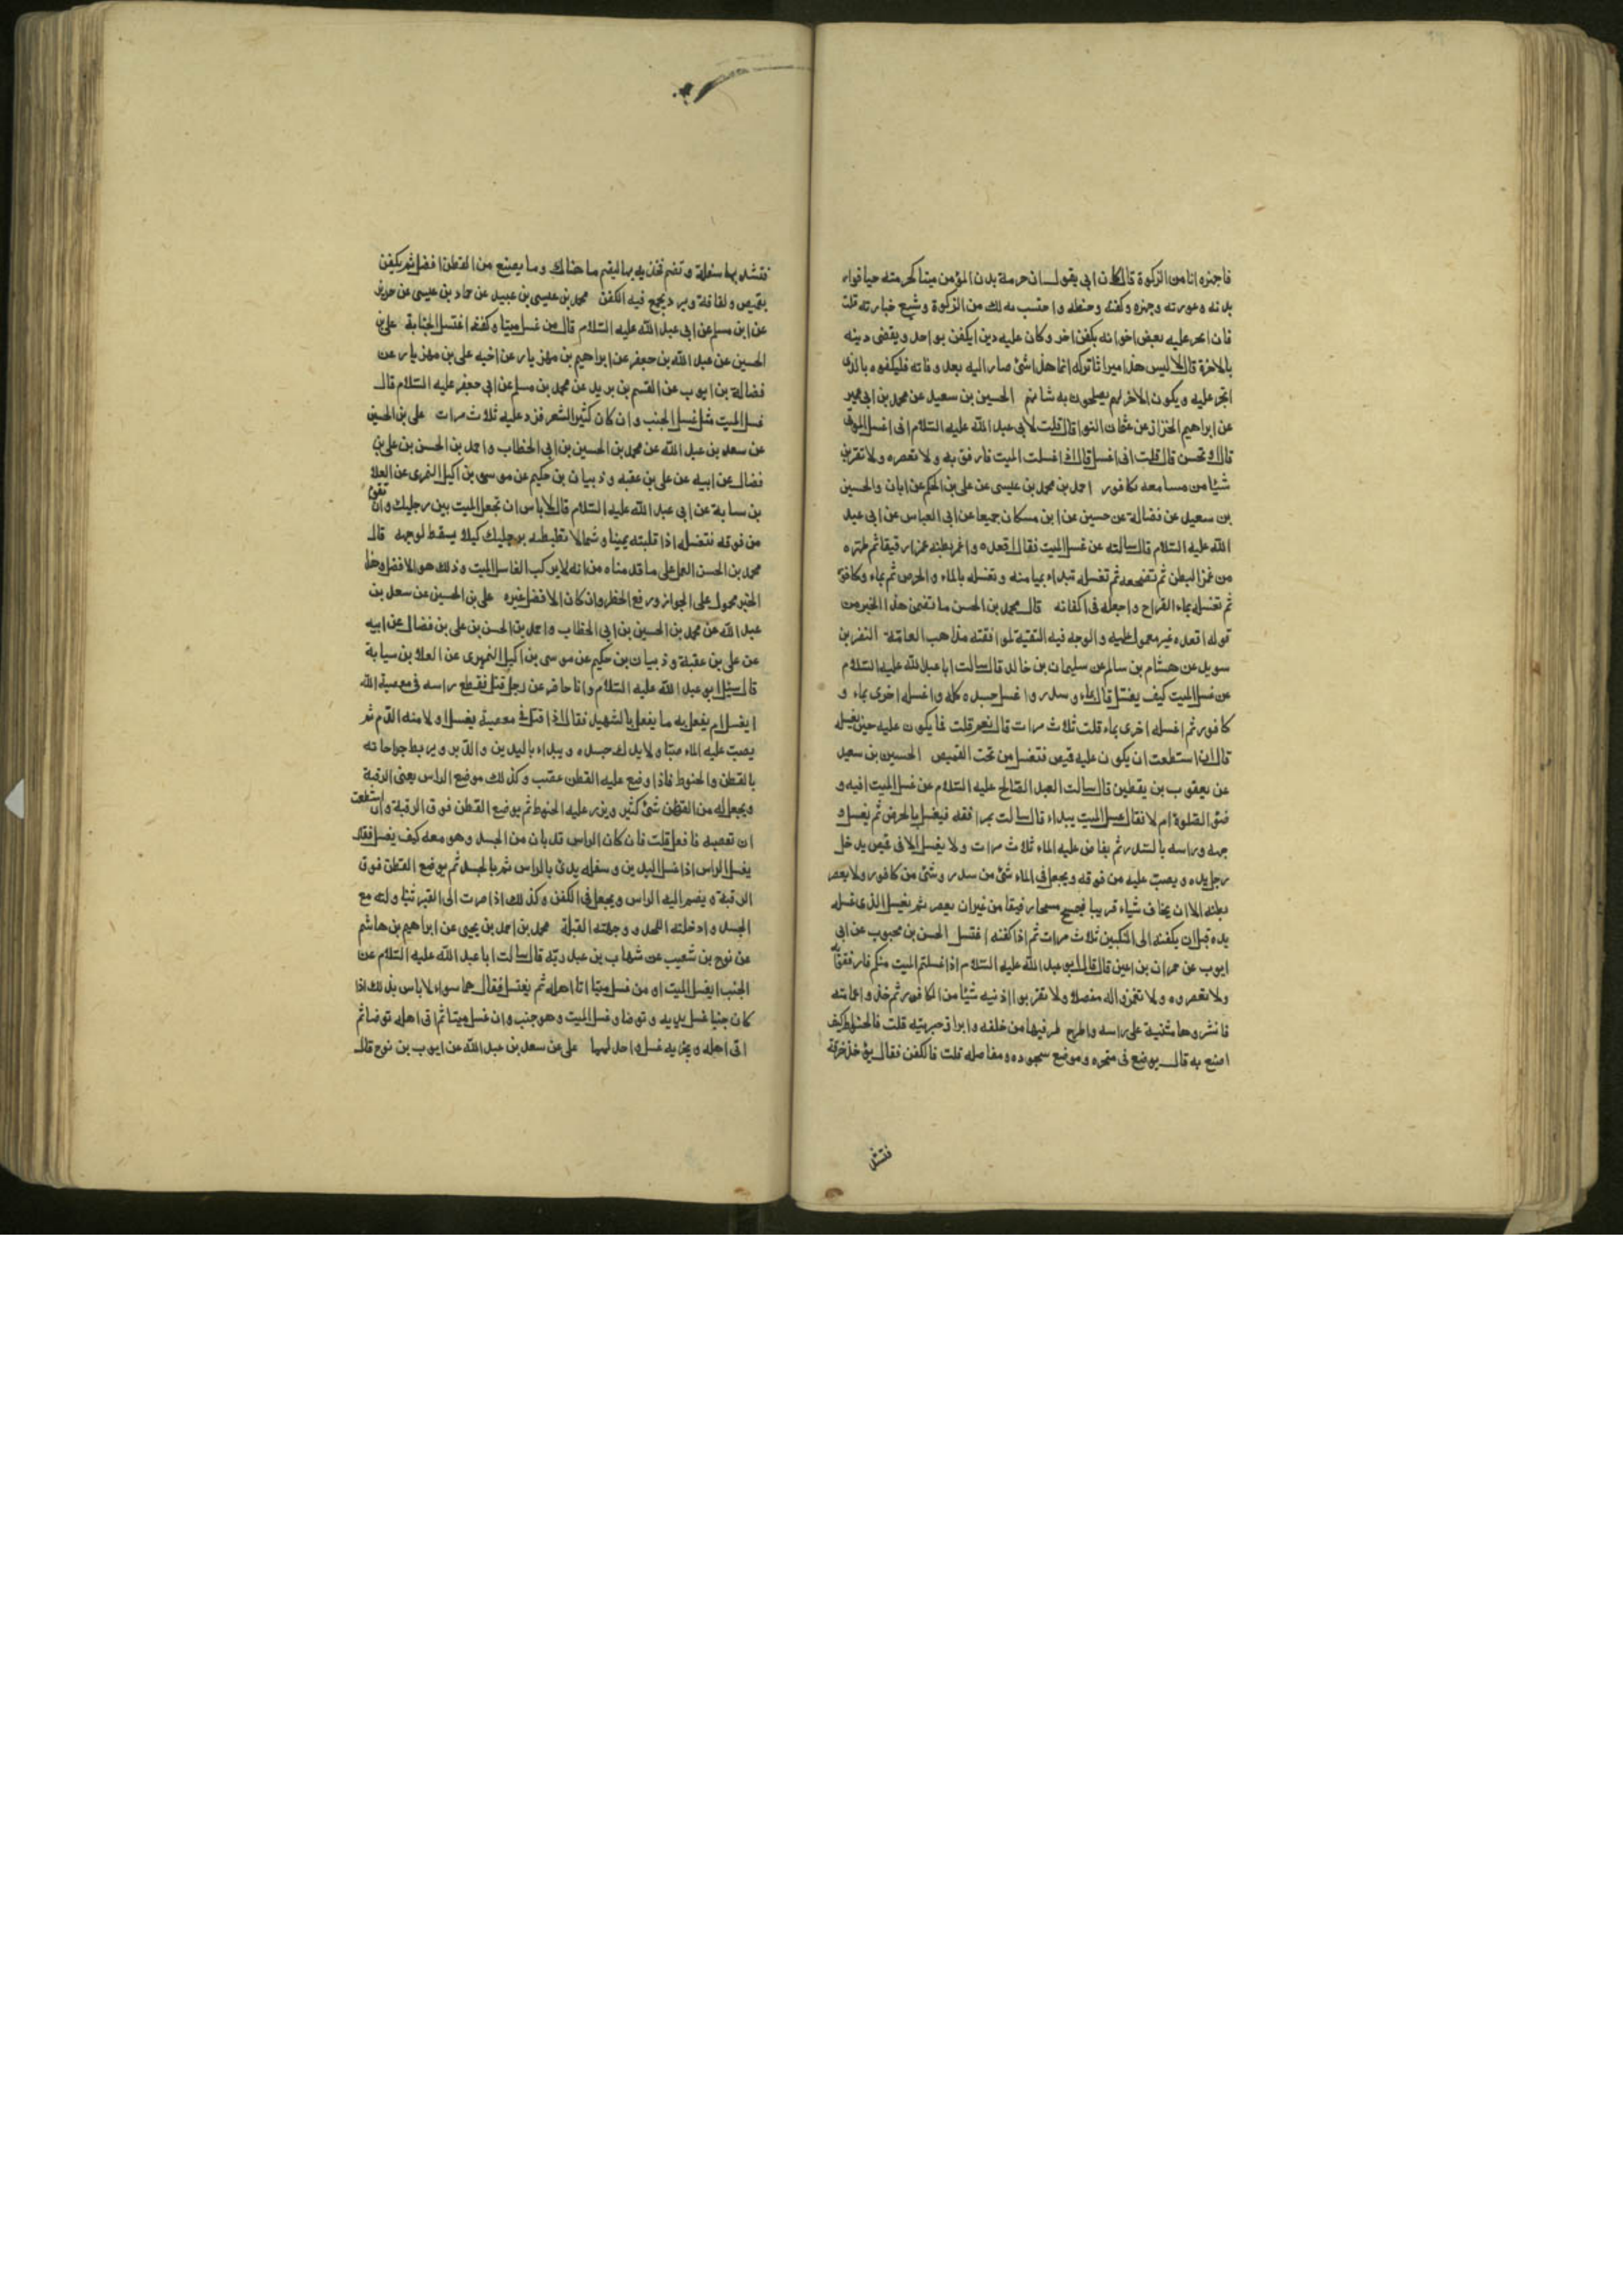 فاجهزه انا من الزكوة قال كان ابي يقول ان حرمة بدن المؤمن ميتا كحرمته حيا فوار
بدنه وعورته وجهزه وكفنه وحنطه واحتسب بذلك من الزكوة وشيع جنازته قلت
فان اتجر عليه بعض اخوانه بكفن اخر وكان عليه دين ايكفن بواحد ويقضى دينه
بالاخر قال لا ليس هذا ميراثا تركه انما هذا شئ صار اليه بعد وفاته فليكفنوه بالذى
اتجر عليه ويكون الاخر لهم يصلحون به شانهم الحسين بن سعيد عن محمد بن ابي عمير
عن ابراهيم الخزاز عن عثمان النوا قال قلت لابي عبد الله عليه السلام انى اغسل الموتى
قال وتحسن قال قلت انى اغسل قال اذا غسلت الميت فارفق به ولا تعصره ولا تقربن
شيئا من مسامعه بكافور احمد بن محمد بن عيسى عن على بن الحكم عن ابان والحسين
بن سعيد عن فضالة عن حسين عن ابن مسكان جميعا عن ابي العباس عن ابي عبد
الله عليه السلام قال سالته عن غسل الميت فقال اقعده واغمز بطنه غمزا رقيقا ثم طهره
من غمز البطن ثم تضجعه ثم تغسله تبداء بميامنه وتغسله بالماء والحرض ثم بماء وكافور
ثم تغسله بماء القراح واجعله فى اكفانه قال محمد بن الحسن ما تضمن هذا الخبر من
قوله اقعده غير معمول عليه والوجه فيه التقية لموافقته مذاهب العامة النضر بن
سويد عن هشام بن سالم عن سليمان بن خالد قال سالت ابا عبد الله عليه السلام
عن غسل الميت كيف يغسل قال بماء وسدر واغسل جسده كله واغسله اخرى بماء و
كافور ثم اغسله اخرى بماء قلت ثلاث مرات قال نعم قلت فما يكون عليه حين يغسله
قال ان استطعت ان يكون عليه قميص فتغسل من تحت القميص الحسين بن سعيد
عن يعقوب بن يقطين قال سالت العبد الصالح عليه السلام عن غسل الميت افيه و
ضوء الصلوة ام لا فقال غسل الميت يبداء بمرافقه فيغسل بالحرض ثم يغسل و
جهه وراسه بالسدر ثم يفاض عليه الماء ثلاث مرات ولا يغسل الا فى قميص يدخل
رجل يده ويصب عليه من فوقه ويجعل فى الماء شئ من سدر وشئ من كافور ولا يعصر
بطنه الا ان يخاف شياء قريبا فيمسح مسحا رفيقا من غير ان يعصر ثم يغسل الذى غسله
يده قبل ان يكفنه الى المنكبين ثلاث مرات ثم اذا كفنه اغتسل الحسن بن محبوب عن ابي
ايوب عن حمران بن اعين قال قال ابو عبد الله عليه السلام اذا غسلتم الميت منكم فارفقوا به
ولا تعصروه ولا تغمزوا له مفصلا ولا تقربوا اذنيه شيئا من الكافور ثم خذوا عمامته
فانشروها مثنية على راسه واطرح طرفيها من خلفه وابرز جبهته قلت فالحنوط كيف
اصنع به قال يوضع فى منخره وموضع سجوده ومفاصله قلت فالكفن فقال يؤخذ خرقة
فتشد
فتشد بها سفلة وتضم فخذيه بها ليضم ما هناك وما يصنع من القطن افضل ثم يكفن
بقميص ولفافة وبرد يجمع فيه الكفن محمد بن عيسى بن عبيد عن حماد بن عيسى عن حريز
عن ابن مسلم عن ابي عبد الله عليه السلام قال من غسل ميتا وكفنه اغتسل الجنابة على بن
الحسين عن عبد الله بن جعفر عن ابراهيم بن مهزيار عن اخيه على بن مهزيار عن
فضالة بن ايوب عن القسم بن بريد عن محمد بن مسلم عن ابي جعفر عليه السلام قال
غسل الميت مثل غسل الجنب وان كان كثير الشعر فزد عليه ثلاث مرات على بن الحسين
عن سعد بن عبد الله عن محمد بن الحسين بن ابي الخطاب واحمد بن الحسن بن على بن
فضال عن ابيه عن على بن عقبه وذبيان بن حكيم عن موسى بن اكيل النمرى عن العلا
بن سيابة عن ابي عبد الله عليه السلام قال لا باس ان تجعل الميت بين رجليك وان تقوم
من فوقه فتغسله اذا قلبته يمينا وشمالا تضبطه برجليك كيلا يسقط لوجهه قال
محمد بن الحسن العمل على ما قدمناه من انه لا يركب الغاسل الميت وذلك هو الافضل وهذا
الخبر محمول على الجواز ورفع الحظر وان كان الافضل غيره على بن الحسين عن سعد بن
عبد الله عن محمد بن الحسين بن ابي الخطاب واحمد بن الحسن بن على بن فضال عن ابيه
عن على بن عقبة وذبيان بن حكيم عن موسى بن اكيل النميرى عن العلا بن سيابة
قال سئل ابو عبد الله عليه السلام وانا حاضر عن رجل قتل فقطع راسه فى معصية الله
ايغسل ام يفعل به ما يفعل بالشهيد فقال اذا قتل فى معصية يغسل اولا منه الدم ثم
يصب عليه الماء صبا ولا يدلك جسده ويبداء باليدين والدبر ويربط جراحاته
بالقطن والحنوط فاذا وضع عليه القطن عصب وكذلك موضع الراس يعنى الرقبة
ويجعل له من القطن شئ كثير ويذر عليه الحنوط ثم يوضع القطن فوق الرقبة وان استطعت
ان تعصبه فافعل قلت فان كان الراس قد بان من الجسد وهو معه كيف يغسل فقال
يغسل الراس اذا غسل اليدين وسفله بدئ بالراس ثم بالجسد ثم يوضع القطن فوق
الرقبة ويضم اليه الراس ويجعل فى الكفن وكذلك اذا صرت الى القبر تناولته مع
الجسد وادخلته اللحد ووجهته القبلة محمد بن احمد بن يحيى عن ابراهيم بن هاشم
عن نوح بن شعيب عن شهاب بن عبد ربه قال سالت ابا عبد الله عليه السلام عن
الجنب ايغسل الميت او من غسل ميتا اتا اهله ثم يغتسل فقال هما سواء لا باس بذلك اذا
كان جنبا غسل يديه وتوضا وغسل الميت وهو جنب وان غسل ميتا ثم اتى اهله توضا ثم
اتى اهله ويجزيه غسل واحد لهما على عن سعد بن عبد الله عن ايوب بن نوح قال